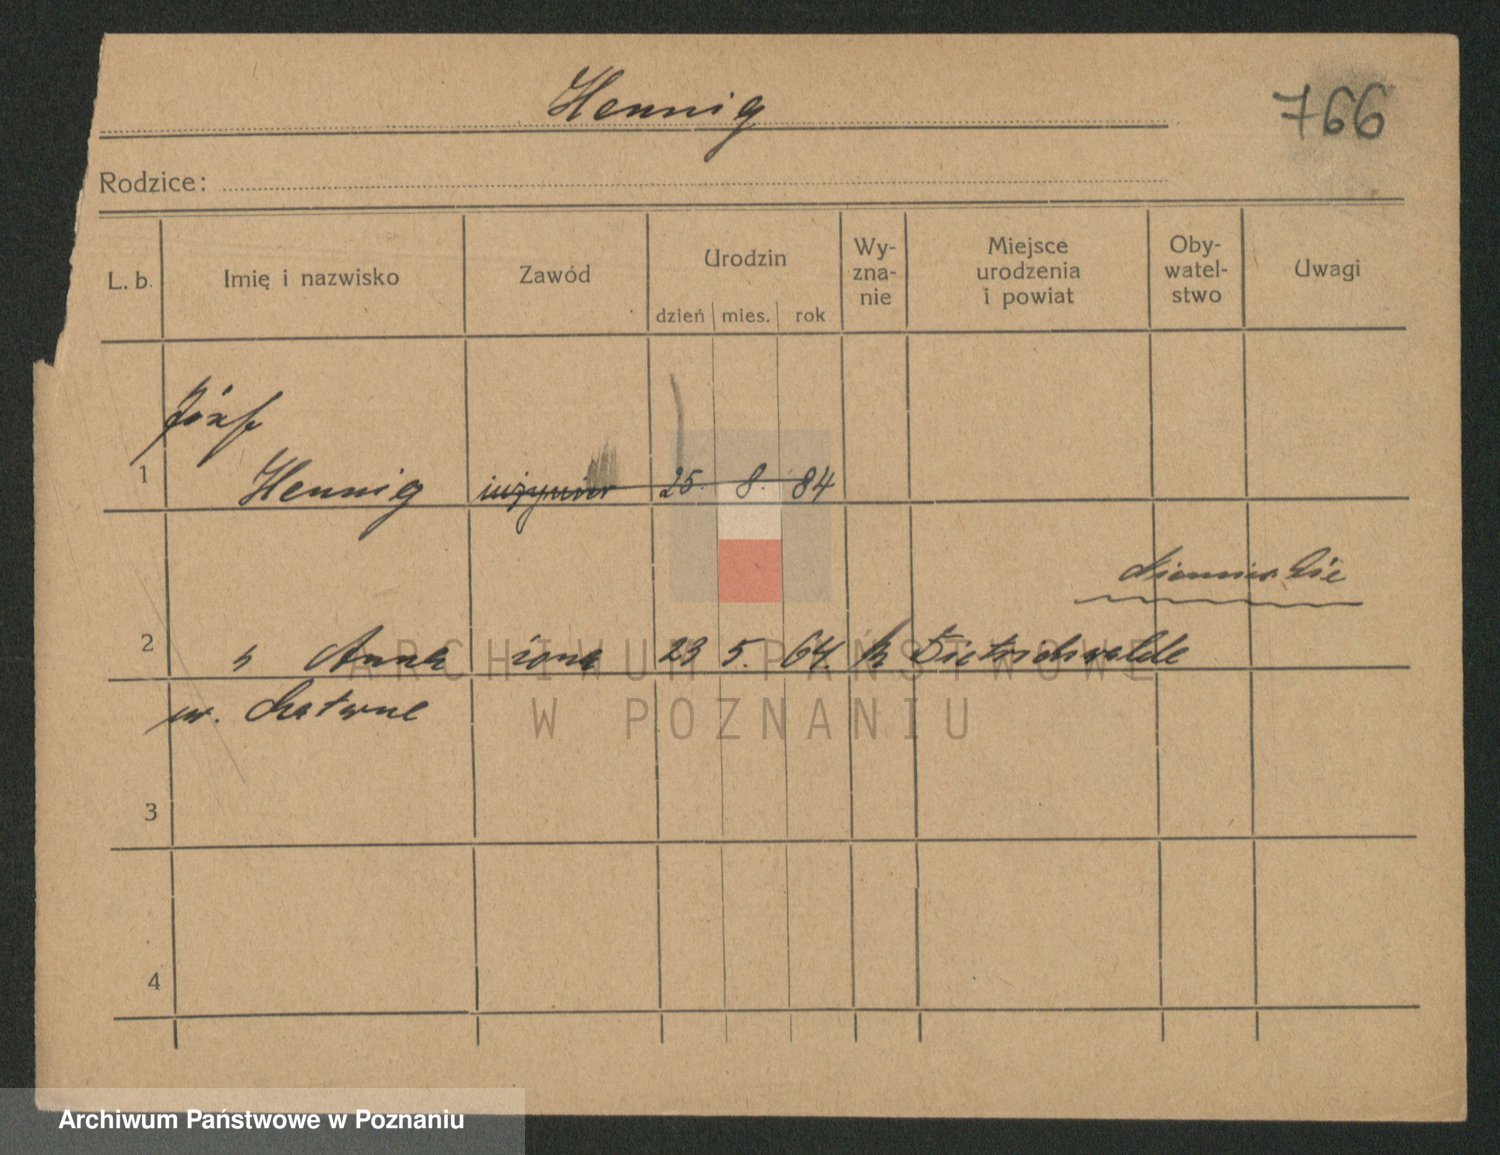 Hennig
766
Rodzice:
L. b. Imię i nazwisko Zawód Urodzin dzień mies. rok Wy-zna-nie Miejsce urodzenia i powiat Oby-watel-stwo Uwagi
Józef
1 Hennig inżynier 25. 8. 84
niemieckie
2 Anna żona 23 5. 64. k Dietrichswalde
ur.
3
4
ARCHIWUM PAŃSTWOWE
W POZNANIU
Archiwum Państwowe w Poznaniu